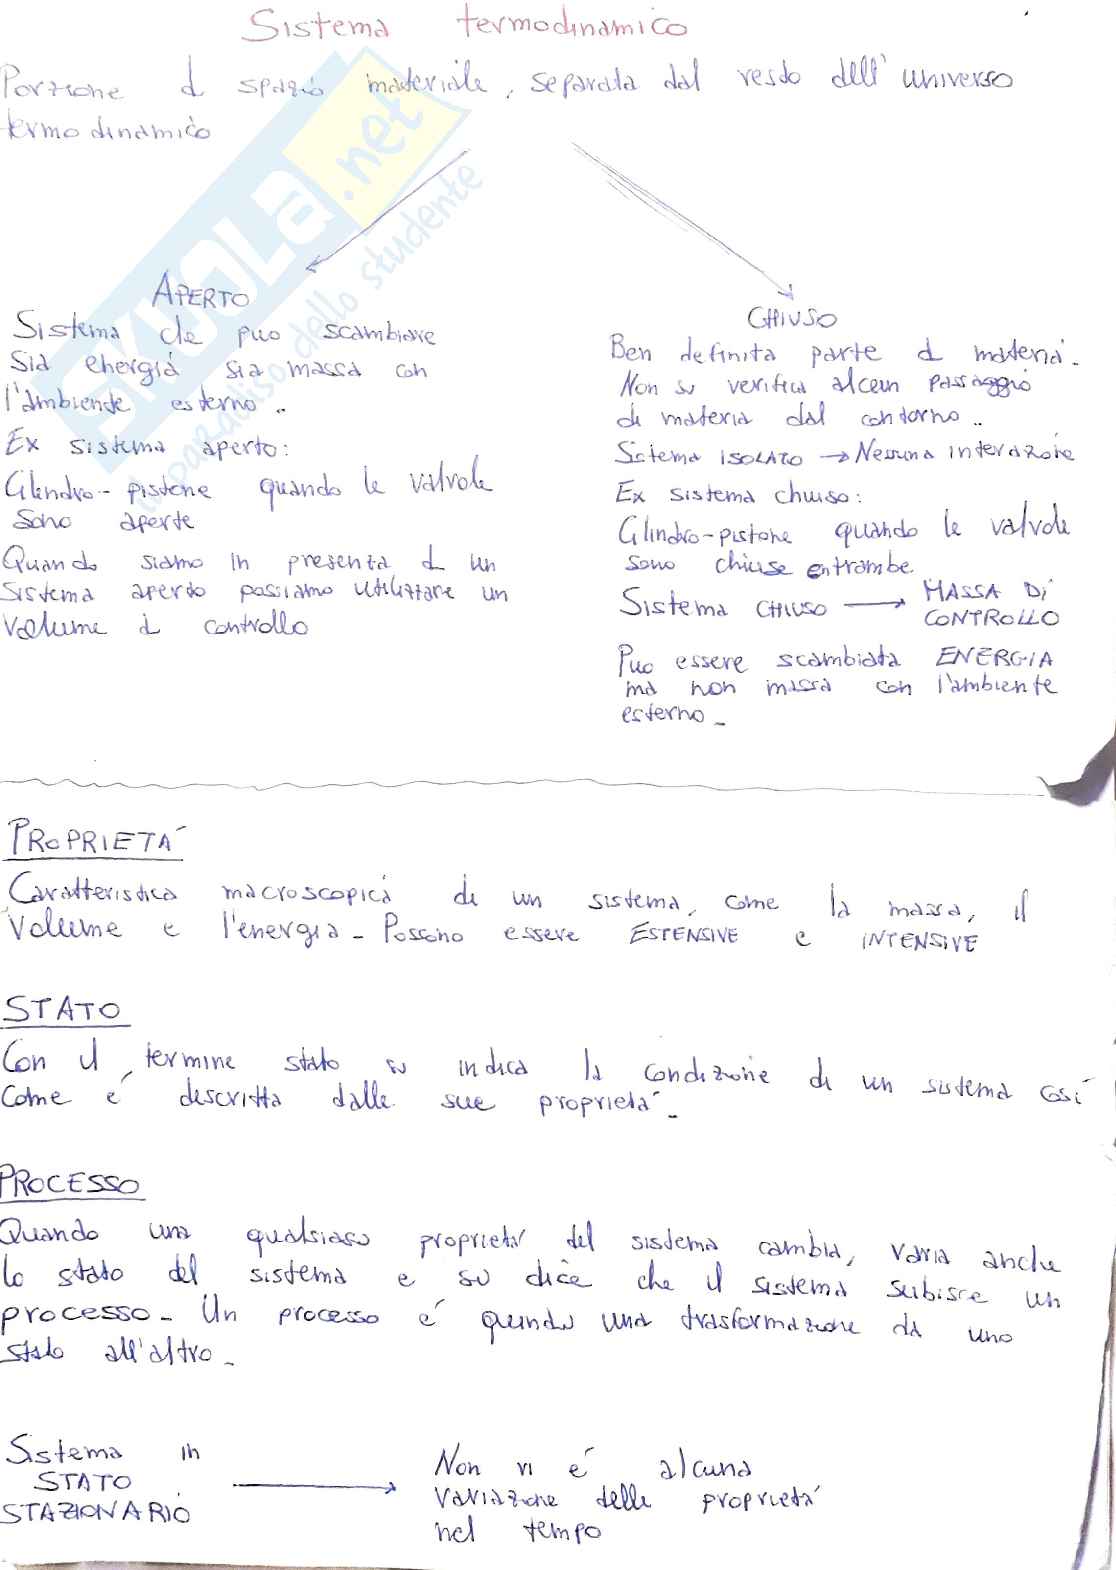 Sistema termodinamico
Porzione di spazio materiale, separata dal resto dell'universo
termodinamico
SKUOLA.net
il paradiso dello studente
APERTO
Sistema che puo scambiare
sia energia sia massa con
l'ambiente esterno..
Ex sistema aperto:
Cilindro-pistone quando le valvole
sono aperte
Quando siamo in presenza di un
sistema aperto possiamo utilizzare un
volume di controllo
CHIUSO
Ben definita parte di materia.
Non si verifica alcun passaggio
di materia dal contorno..
Sistema ISOLATO → Nessuna interazione
Ex sistema chiuso:
Cilindro-pistone quando le valvole
sono chiuse entrambe
Sistema CHIUSO → MASSA DI
CONTROLLO
Puo essere scambiata ENERGIA
ma non massa con l'ambiente
esterno_
PROPRIETA'
Caratteristica macroscopica di un sistema, come la massa, il
volume e l'energia_ Possono essere ESTENSIVE e INTENSIVE
STATO
Con il termine stato si indica la condizione di un sistema cosí
come é descritta dalle sue proprietá_
PROCESSO
Quando una qualsiasi proprietá del sistema cambia, varia anche
lo stato del sistema e si dice che il sistema subisce un
processo_ Un processo é quindi una trasformazione da uno
stato all'altro_
Sistema in
STATO
STAZIONARIO
→ Non vi é alcuna
variazione delle proprietá
nel tempo